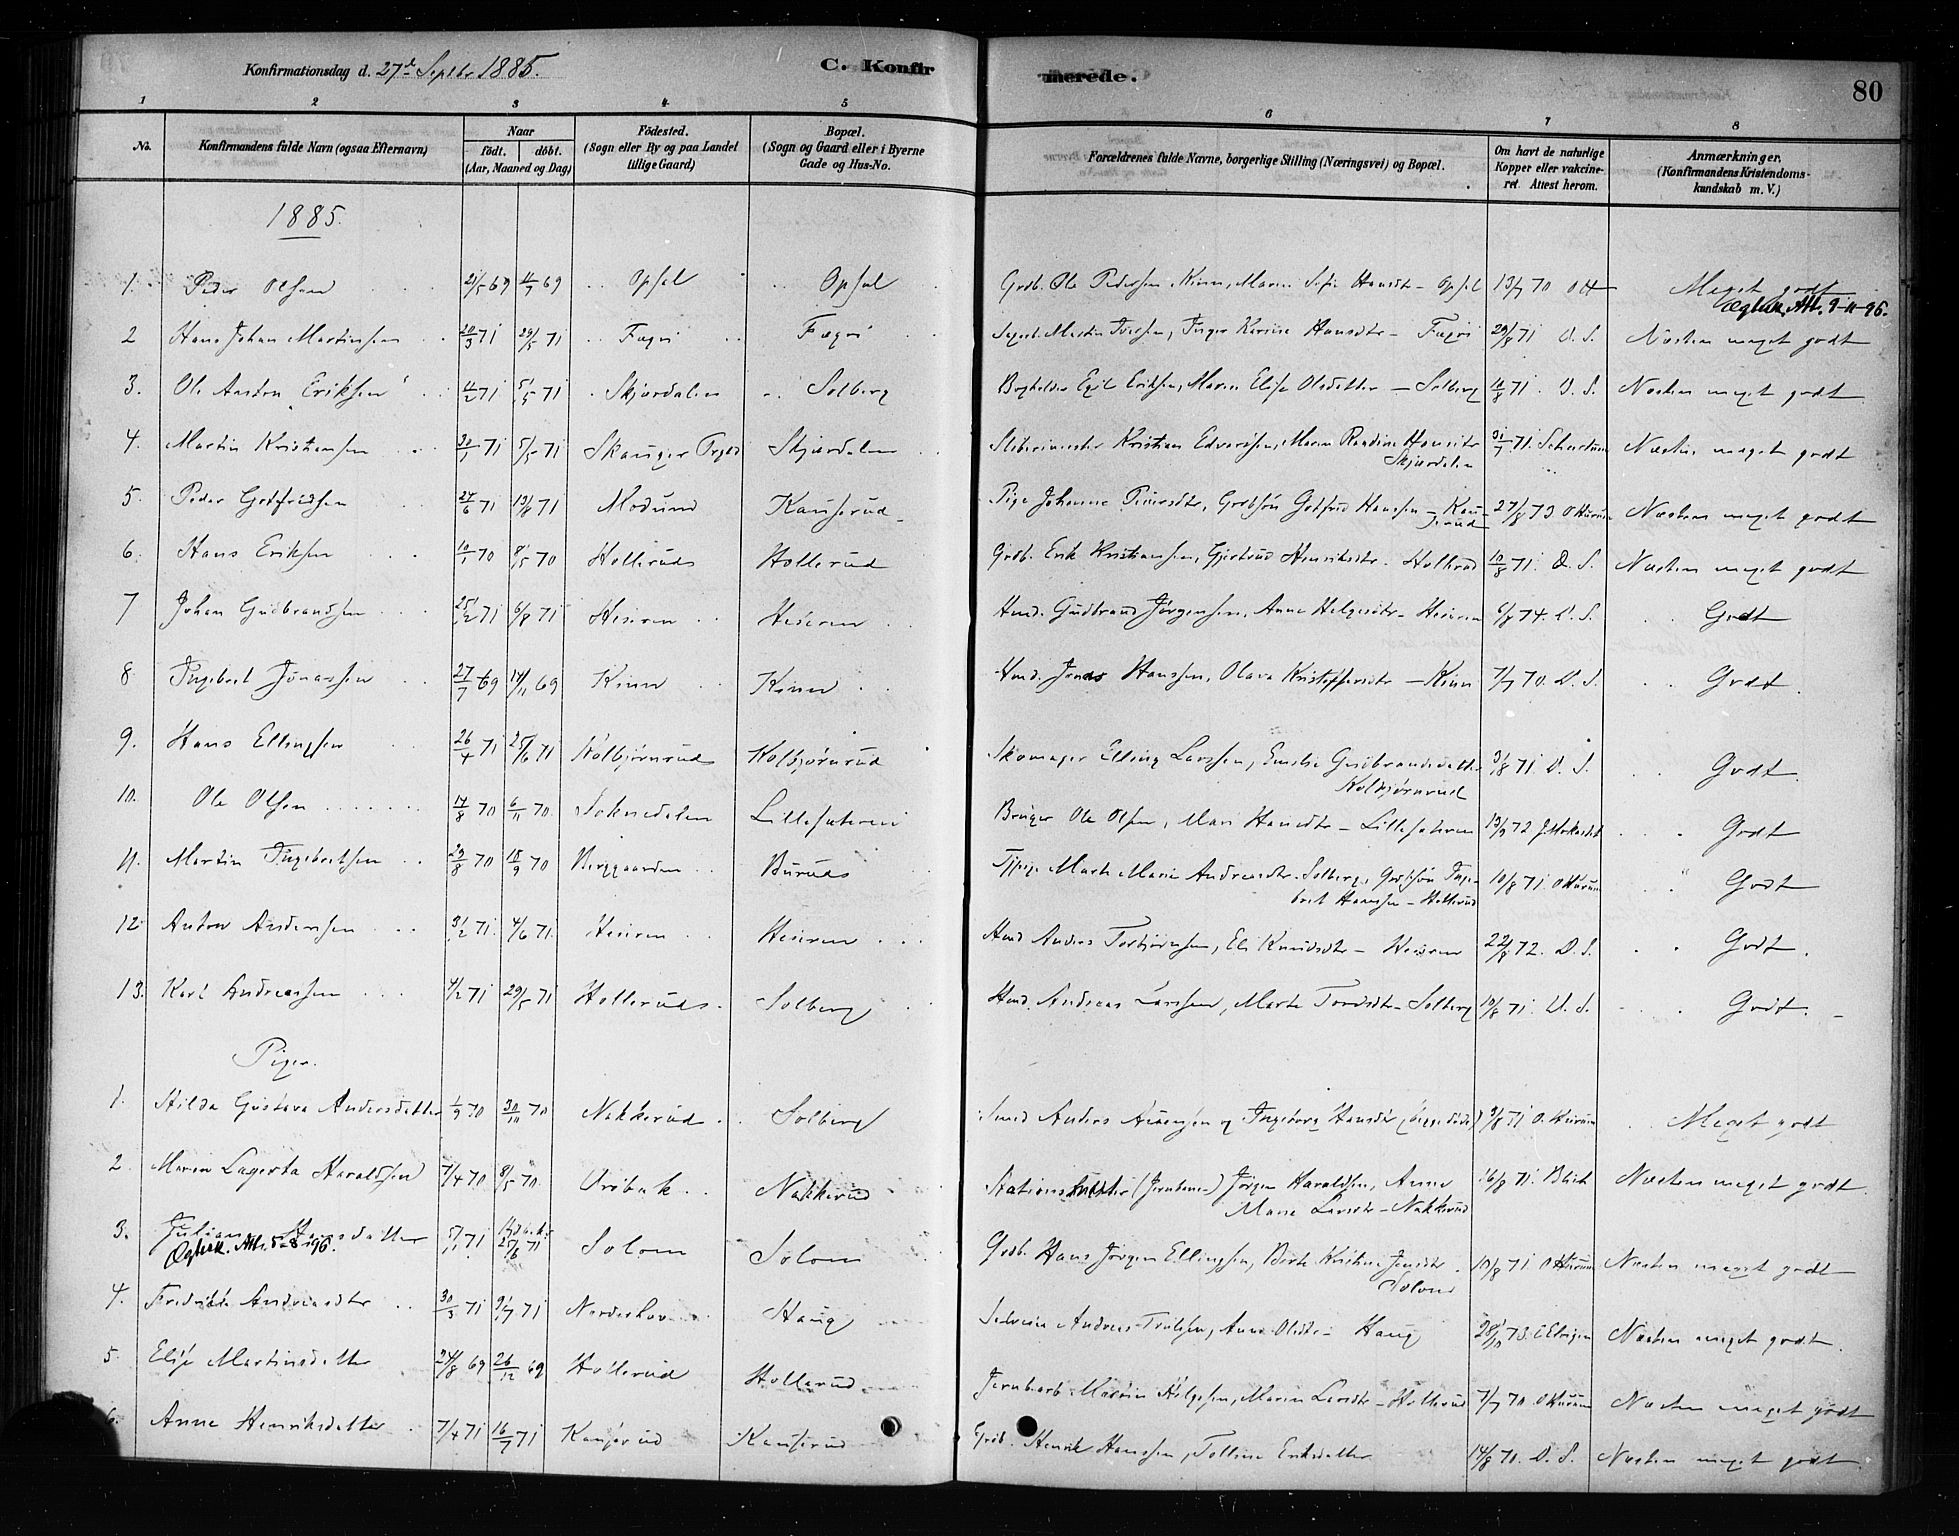 Konfirmationsdag d. 27de Septbr 1885. C. Konfirmerede. 80
1 2 3 4 5 6 7 8
No. Konfirmandens fulde Navn (ogsaa Efternavn) Naar födt. döbt. (Aar, Maaned og Dag) Födested. (Sogn eller By og paa Landet tillige Gaard) Bopæl. (Sogn og Gaard eller i Byerne Gade og Hus-No. Forældrenes fulde Navne, borgerlige Stilling (Næringsvei) og Bopæl. Om havt de naturlige Kopper eller vakcineret. Attest herom. Anmærkninger. (Konfirmandens Kristendomskundskab m. V.)
1885.
1. Peder Olsen 21/5 69 11/7 69 Opsal Opsal Grdb. Ole Pedersen Kinn, Maren Sofie Hansdtr - Opsal 13/7 70 Meget godt
Att. 9-11-96.
2 Hans Johan Martinsen 20/3 71 29/5 71 Fagri Fagri Martin Iversen, Inger Karine Hansdtr - Fagri 29/8 71 D. S. Næsten meget godt
3. Ole Anton Eriksen 4/2 71 5/5 71 Skjærdalen Solberg Egil Eriksen, Maren Elise Olsdatter - Solberg 10/8 71. D. S. Næsten meget godt
4. Martin Kristiansen 30/1 71 5/5 71 Skauger Prgld Skjærdalen Sliberimester Kristian Edvardsen, Maren Randine Hansdtr 71. Næsten meget godt
Skjærdalen
5. Peder Godfredsen 24/6 71 13/8 71 Modum Kauserud Pige Johanne Pedersdtr, Grdbsøn Godfred Hansen - Kauserud 27/8 73 O Hurum Næsten meget godt
6. Hans Eriksen 10/1 70 8/5 70 Holleruds Hollerud Grdb. Erik Kristiansen, Gjertrud Henriksdtr - Hollerud 10/8 71. D. S. Næsten meget godt
7 Johan Gudbrandsen 25/2 71 6/8 71 Heieren Heieren Hmd. Gudbrand Jørgensen, Anne Helgesdtr - Heieren 6/8 74. D. S. Godt
8 Ingebret Jonassen 27/7 69 14/11 69 Kinn Kinn Hmd. Jonas Hanssen, Olava Kristoffersdtr - Kinn 7/7 70. D. S. Godt.
9. Hans Ellingsen 26/4 71 25/6 71 Kolbjørnrud Kolbjørnrud Skomager Elling Larssen, Emilie Gudbrandsdatter 3/8 71. D. S. Godt.
Kolbjørnrud
10. Ole Olsen 14/8 70 6/11 70 Soknedalen Lillesæteren Bruger Ole Olsen, Mari Hansdtr - Lillesæteren 19/9 72 Godt
11. Martin Ingebretsen 29/8 70 18/9 70 Berggaarden Buruds Tjpige Marte Marie Andreasdtr - Solberg, Grdbsøn Inge- 10/8 71. O Hurum Godt
bret Hanssen - Hollerud
12 Anton Andersen 3/2 71. 4/6 71 Heieren Heieren Hmd Anders Torbjørnsen, Eli Knudsdtr - Heieren 22/8 72. D. S. Godt.
13. Karl Andreassen 4/2 71 29/5 71 Holleruds Solberg Hmd. Andreas Larssen, Marte Tordsdtr - Solberg 10/8 71. D. S. Godt.
Piger.
1. Hilda Gustava Andersdatter 1/9 70 30/10 70 Nakkerud Solberg Smed Anders og Ingeborg Hansdtr (begge døde) 9/8 71 O. Hurum Meget godt
2. Maren Lagerta Haraldsen 7/4 70 8/5 70. Drøbak Nakkerud Stationsmester (Jernbane-) Jørgen Haraldsen, Anne 16/8 71. Næsten meget godt.
Marie Larsdtr - Nakkerud
3. Juliane Hansdatter 5/11 71 25/6 71 Solom Solom Grdb. Hans Jørgen Ellingsen, Berte Kristine Jensdtr. 10/8 71 O Hurum Næsten meget godt
Att. 5-8-96. Solom
4. Fredrikke Andreasdtr 30/3 71 9/7 71 Norderhov Haug Andreas Trulsen, Anne Olsdtr - Haug 28/10 73. Næsten meget godt.
5. Elise Martinsdatter 24/8 69 26/12 69 Hollerud Hollerud Jernbarb. Martin Helgesen, Maren Larsdtr - Hollerud 7/7 70 O Hurum Næsten meget godt
6. Anne Henriksdatter 7/4 71 16/7 71 Kauserud Kauserud Grdb. Henrik Hanssen, Eriksdatter 14/8 71. D. S. Næsten meget godt.